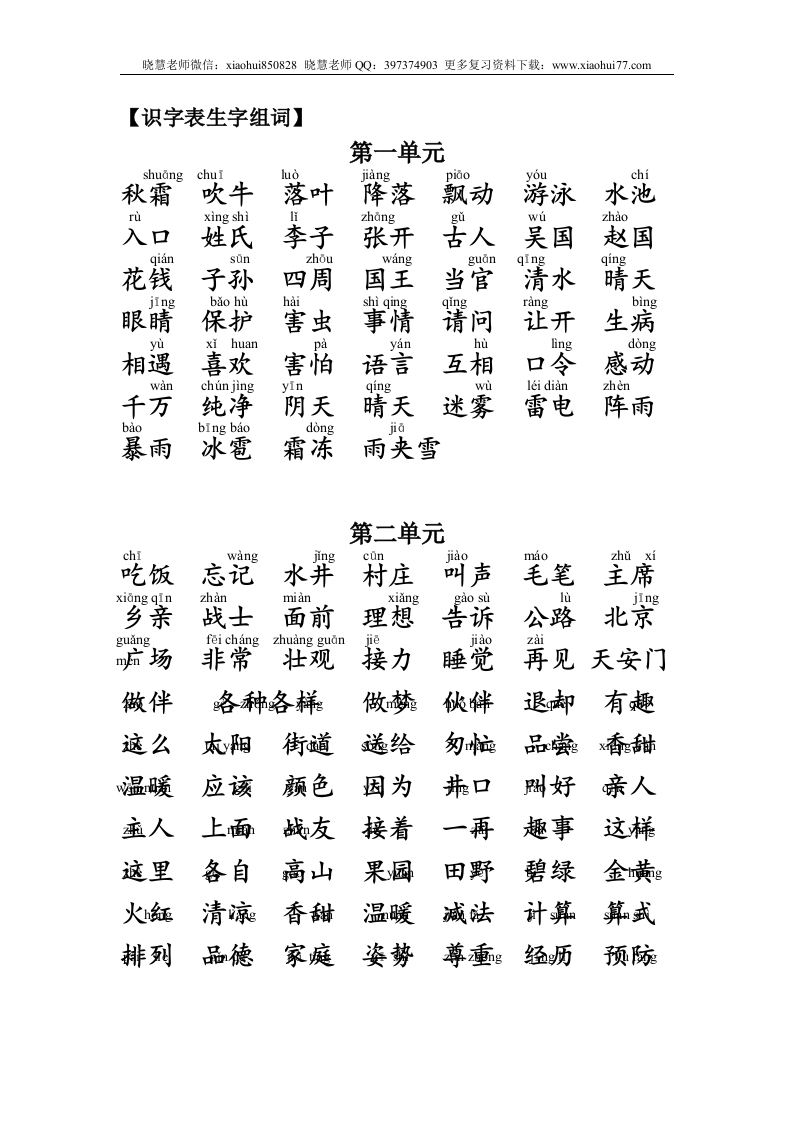 晓慧老师微信：xiaohui850828 晓慧老师 QQ：397374903 更多复习资料下载：www.xiaohui77.com
【识字表生字组词】
第一单元
shuāng chuī luò jiàng piāo yóu chí
秋霜 吹牛 落叶 降落 飘动 游泳 水池
rù xìng shì lǐ zhāng gǔ wú zhào
入口 姓氏 李子 张开 古人 吴国 赵国
qián sūn zhōu wáng guān qīng qíng
花钱 子孙 四周 国王 当官 清水 晴天
jīng bǎo hù hài shì qing qǐng ràng bìng
眼睛 保护 害虫 事情 请问 让开 生病
yù xǐ huan pà yán hù lìng dòng
相遇 喜欢 害怕 语言 互相 口令 感动
wàn chún jìng yīn qíng wù léi diàn zhèn
千万 纯净 阴天 晴天 迷雾 雷电 阵雨
bào bīng báo dòng jiā
暴雨 冰雹 霜冻 雨夹雪
第二单元
chī wàng jǐng cūn jiào máo zhǔ xí
吃饭 忘记 水井 村庄 叫声 毛笔 主席
xiāng qīn zhàn miàn xiǎng gào sù lù jīng
乡亲 战士 面前 理想 告诉 公路 北京
guǎng fēi cháng zhuàng guān jiē jiào zài
广场 非常 壮观 接力 睡觉 再见 天安门
mén
做伴 各种各样 做梦 伙伴 退却 有趣
这么 太阳 街道 送给 匆忙 品尝 香甜
温暖 应该 颜色 因为 井口 叫好 亲人
主人 上面 战友 接着 一再 趣事 这样
这里 各自 高山 果园 田野 碧绿 金黄
火红 清凉 香甜 温暖 减法 计算 算式
排列 品德 家庭 姿势 尊重 经历 预防